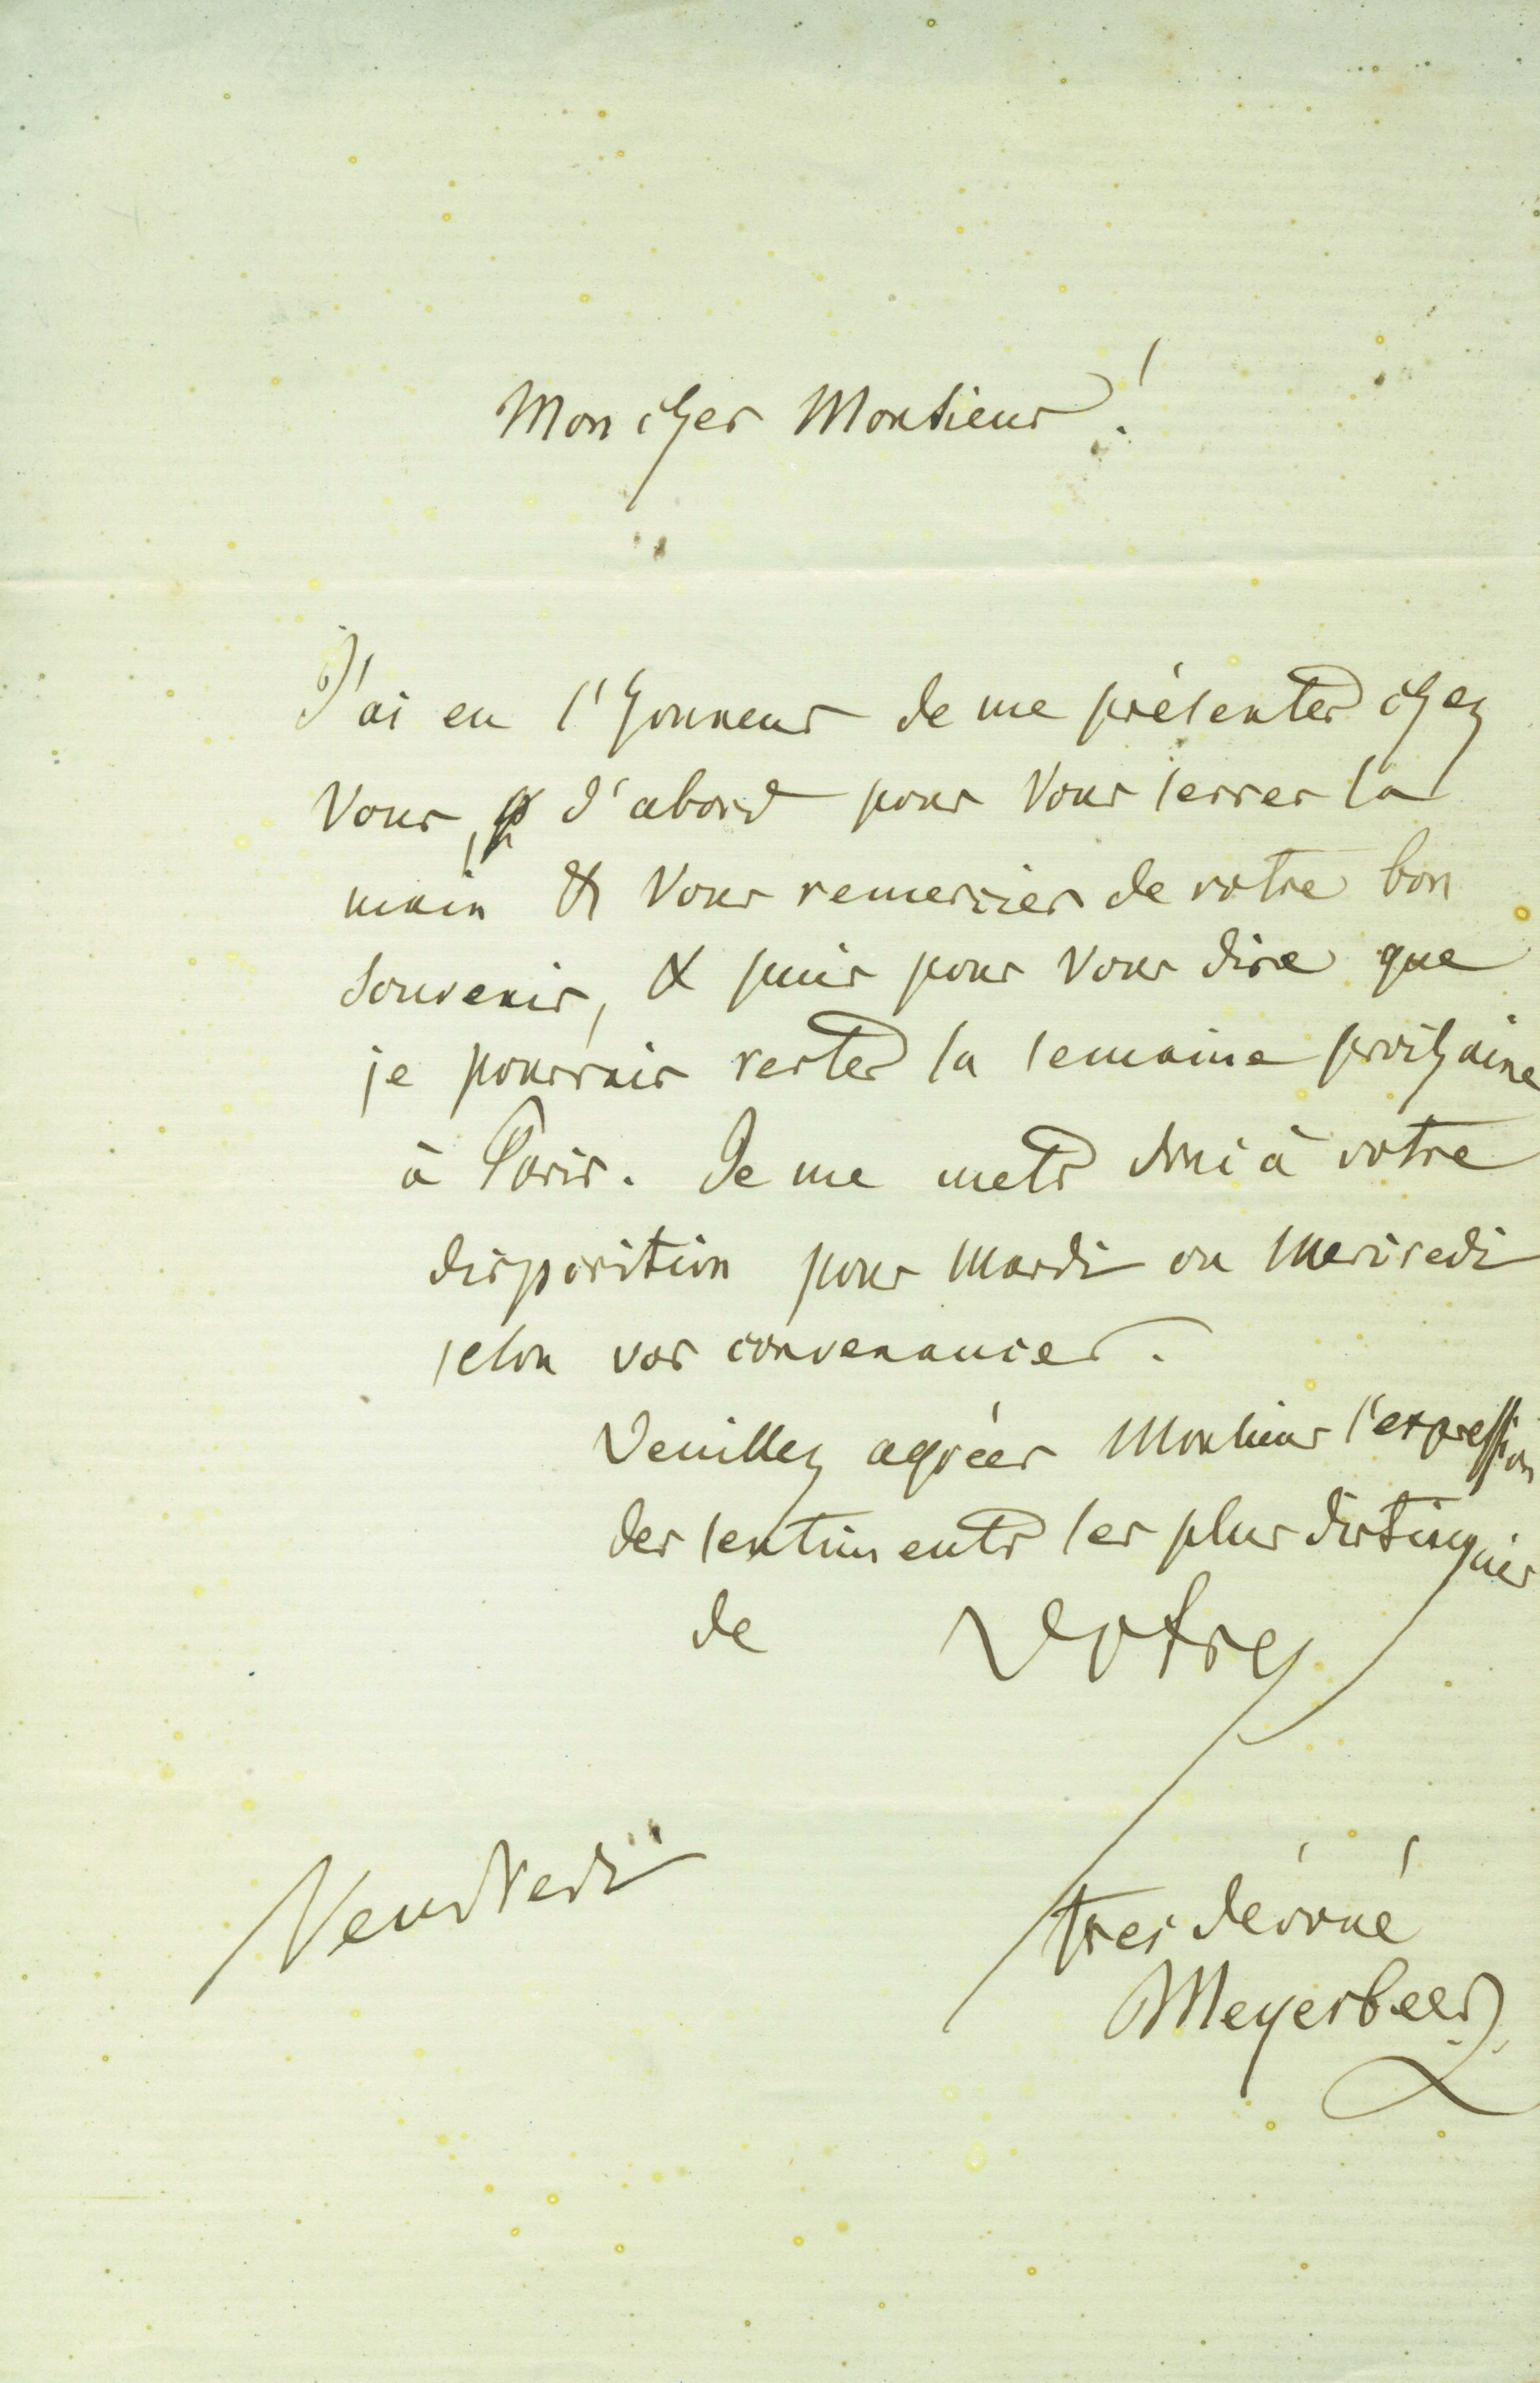 Mon cher Monsieur!
J'ai eu l'honneur de me présenter chez
Vous, d'abord pour Vous serrer la
main & Vous remercier de votre bon
souvenir, & puis pour Vous dire que
je pourrais rester la semaine prochaine
à Paris. Je me mets donc à votre
disposition pour Mardi ou Mercredi
selon vos convenances.
Veuillez agréer Monsieur l'expression
des sentiments les plus distingués
de Votre
Vendredi
tres dévoué
Meyerbeer